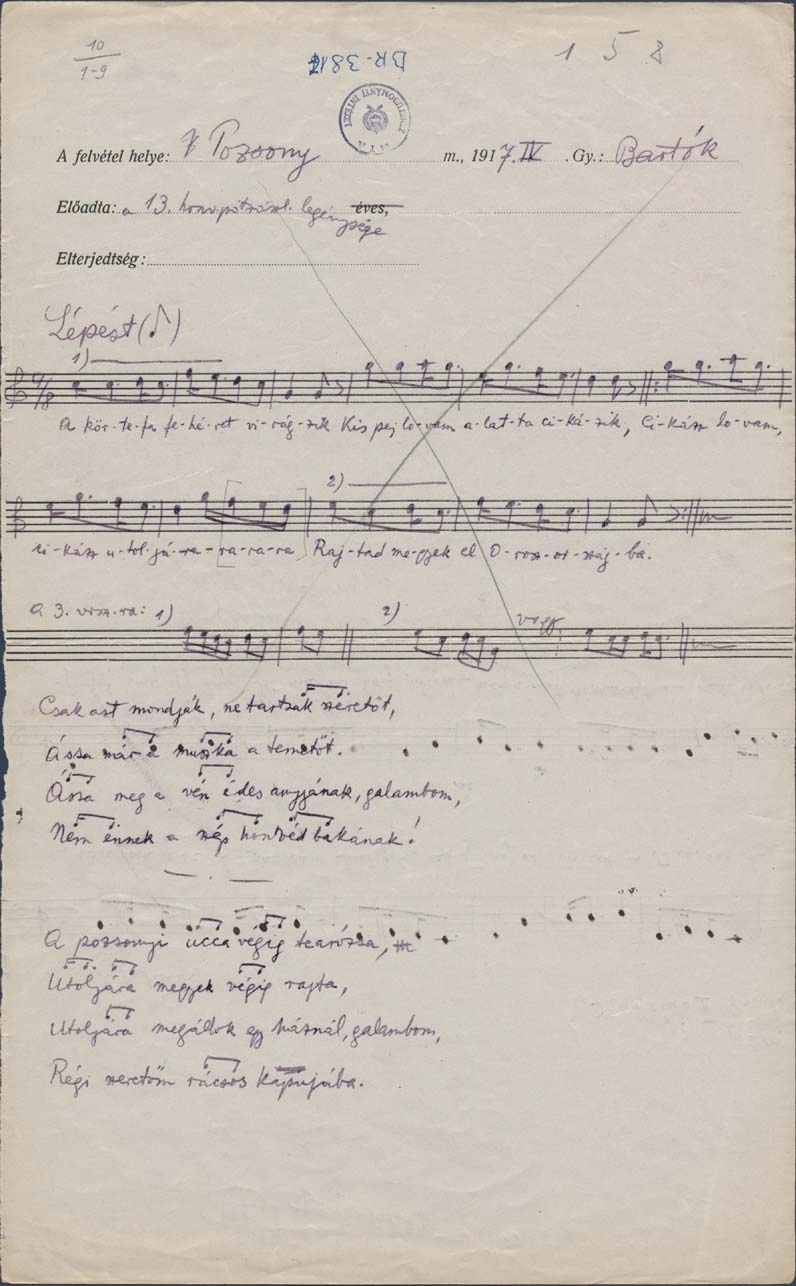 10
1-9
BR-3817
1 5 8
A felvétel helye: Pozsony m., 1917.IV. Gy.: Bartók
Előadta: a 13. honv. pótzászl. legénysége éves,
Elterjedtség:
Lépést (♪)
1)
4/8
A kör-te-fa fe-hé-ret vi-rág-zik Kis pej lo-vam a-lat-ta ci-ká-zik, Ci-kázz lo-vam,
2)
ci-kázz u-tol-já-ra-ra-ra-ra Raj-tad me-gyek el O-rosz-or-szág-ba.
a 3. vrsz.ra: 1) 2) vagy
Csak azt mondják, ne tartsak szeretőt,
Ássa már a muszka a temetőt.
Ássa meg a vén édes anyjának, galambom,
Nem ennek a szép honvéd bakának!
A pozsonyi ucca végig tearózsa,
Utoljára megyek végig rajta,
Utoljára megállok egy háznál, galambom,
Régi szeretőm rácsos kapujába.